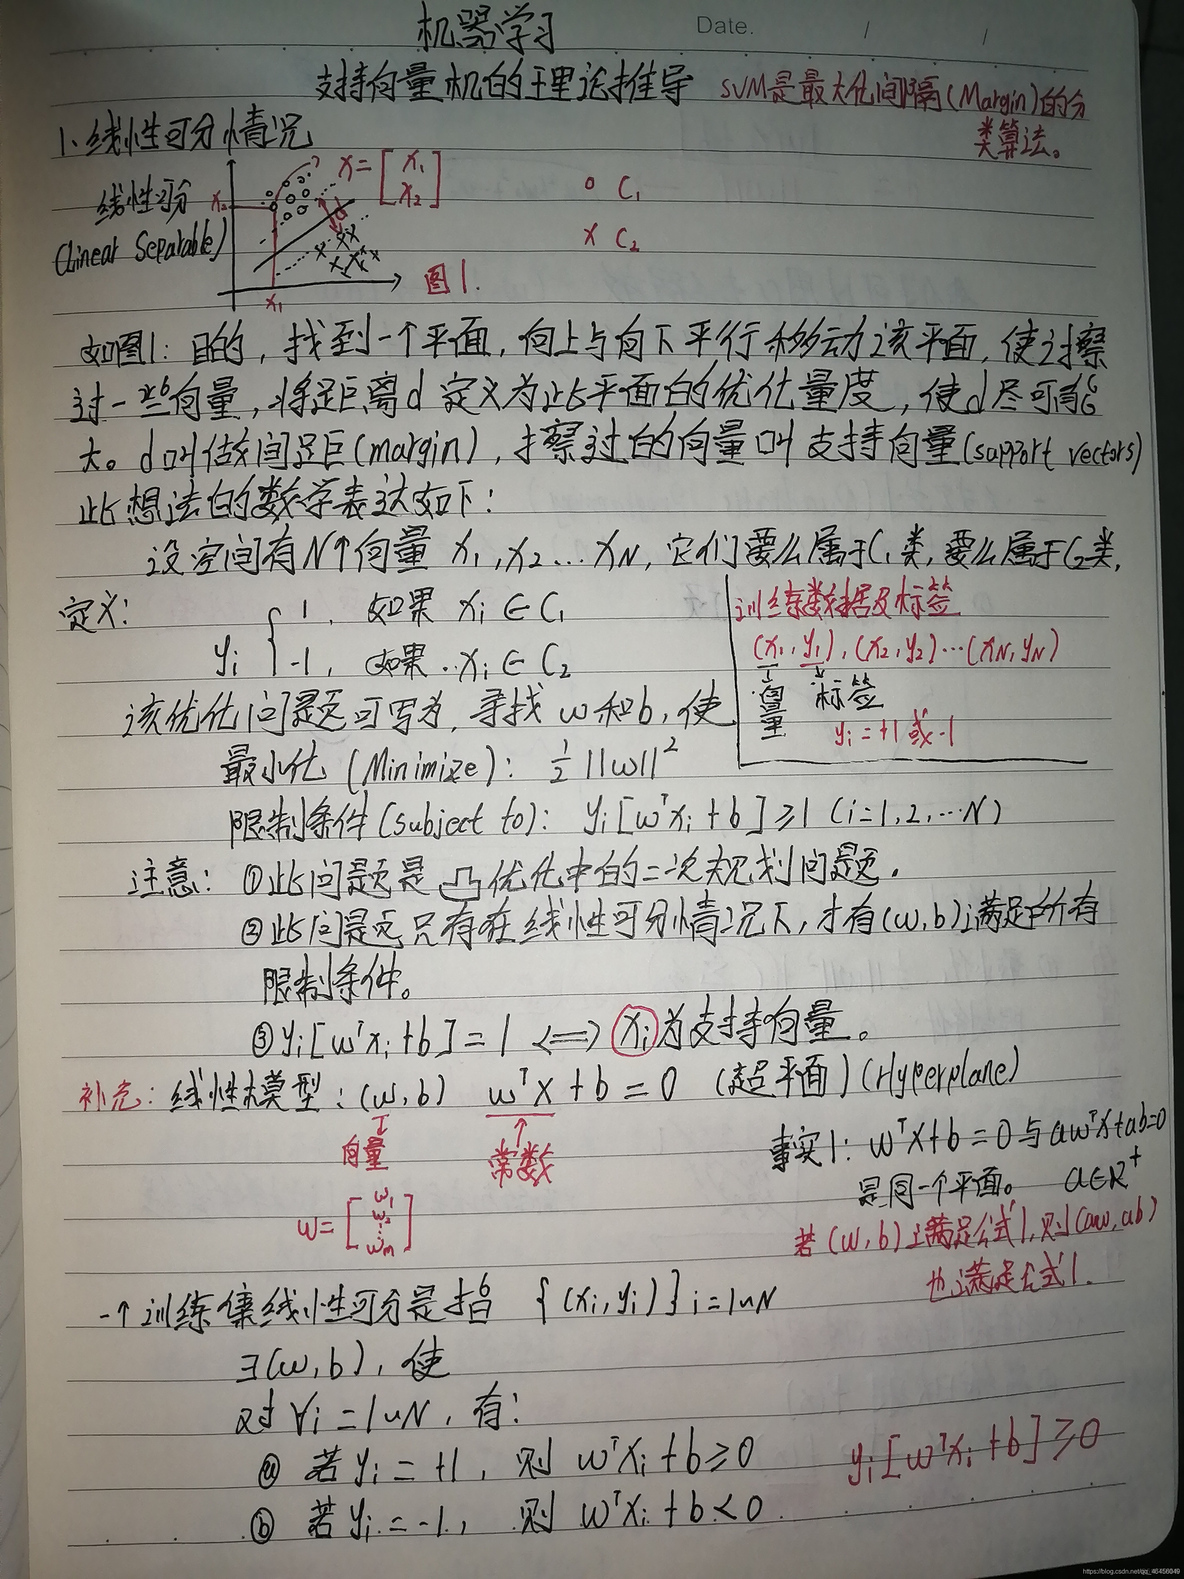 机器学习
Date. / /
支持向量机的理论推导 SVM是最大化间隔(Margin)的分
类算法。
1、线性可分情况
线性可分
(Linear Separable)
x₂
x₁
d
x = [x₁ x₂]
o C₁
x C₂
图1.
如图1:目的,找到一个平面,向上与向下平行移动该平面,使过擦
过一些向量,将距离d定义为此平面的优化量度,使d尽可能
大。d叫做间距(margin),擦过的向量叫支持向量(support vectors)
此想法的数学表达如下:
设空间有N个向量 x₁,x₂...xN,它们要么属于C₁类,要么属于C₂类,
定义:
yᵢ { 1, 如果 xᵢ∈C₁
-1, 如果 xᵢ∈C₂
训练数据及标签
(x₁,y₁),(x₂,y₂)…(xN,yN)
向量 标签
yᵢ=+1或-1
该优化问题可写为,寻找w和b,使
最小化(Minimize): ½||w||²
限制条件(subject to): yᵢ[wᵀxᵢ+b]≥1 (i=1,2,…N)
注意: ①此问题是凸优化中的二次规划问题.
②此问题只有在线性可分情况下,才有(w,b)满足所有
限制条件。
③yᵢ[wᵀxᵢ+b]=1 <=> xᵢ为支持向量。
补充:线性模型:(w,b) wᵀx+b=0 (超平面)(Hyperplane)
向量 常数
w=[w₁ w₂ ⋮ wm]
事实1: wᵀx+b=0与awᵀx+ab=0
是同一个平面。 a∈R⁺
若(w,b)满足公式1,则(aw,ab)
也满足公式1.
一个训练集线性可分是指 {(xᵢ,yᵢ)}i=1~N
∃(w,b),使
对∀i=1~N,有:
ⓐ 若yᵢ=+1, 则 wᵀxᵢ+b≥0
yᵢ[wᵀxᵢ+b]≥0
ⓑ 若yᵢ=-1, 则 wᵀxᵢ+b<0
https://blog.csdn.net/qq_46456049